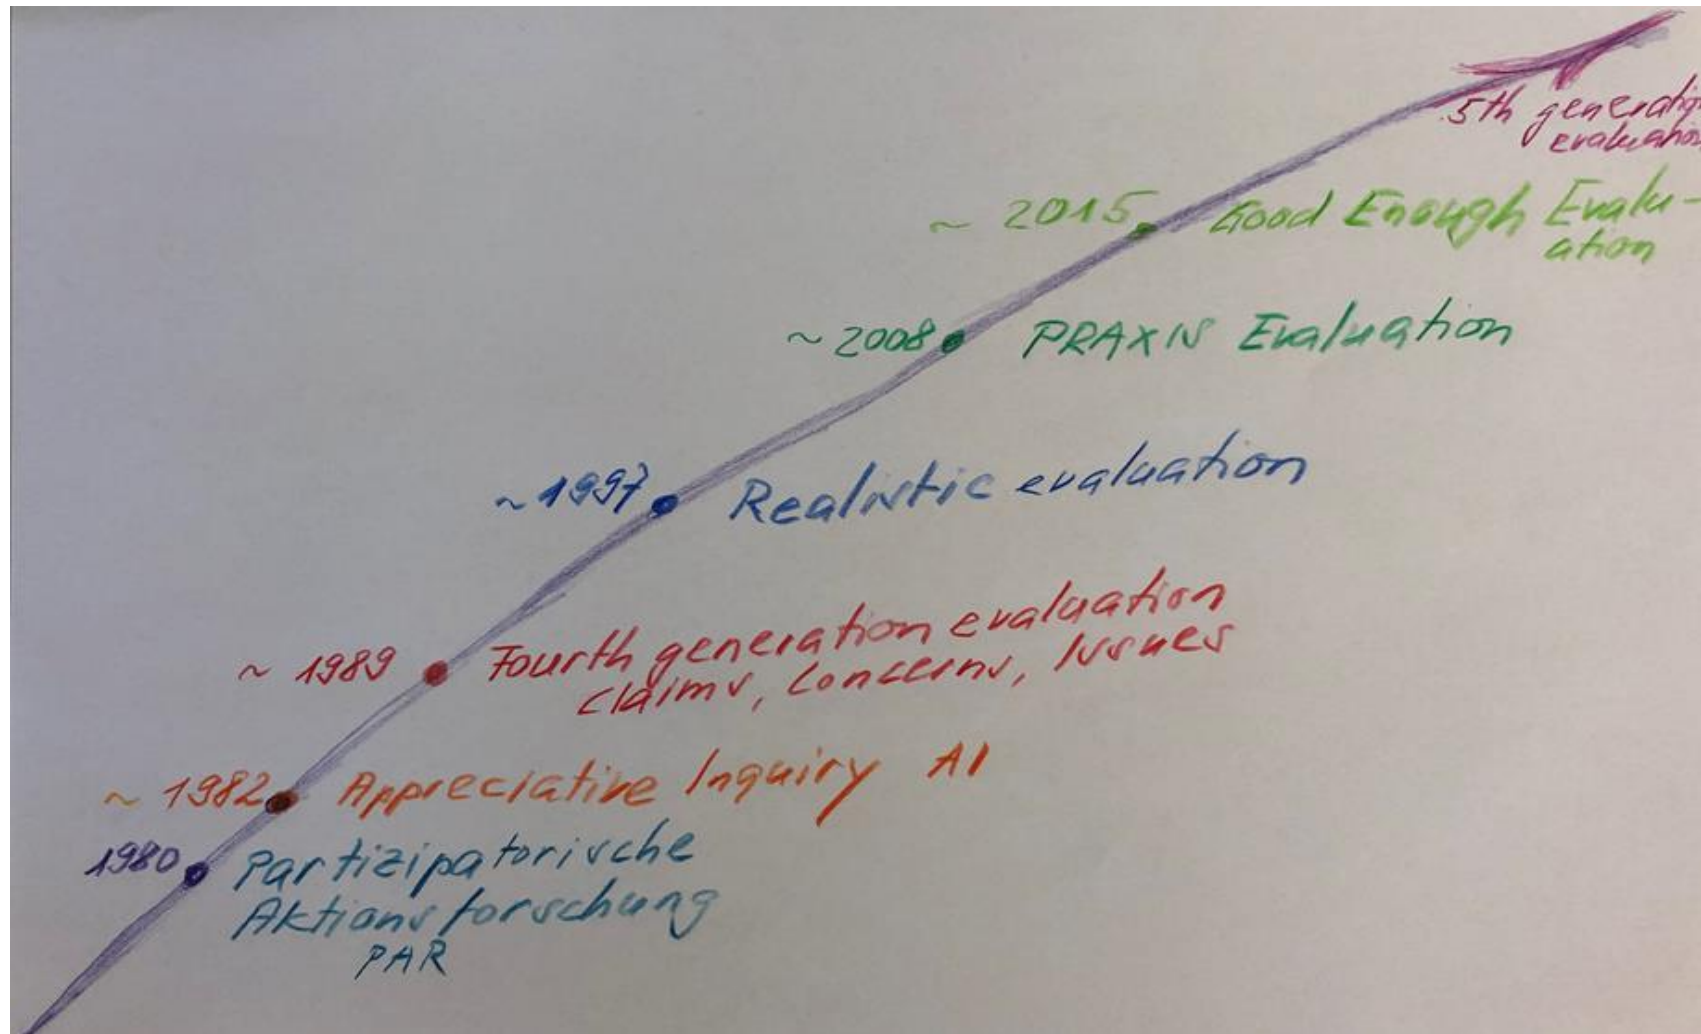 5th generation
evaluation
~ 2015 Good Enough Evalu-
ation
~ 2008 PRAXIS Evaluation
~ 1997 Realistic evaluation
~ 1989 Fourth generation evaluation
claims, concerns, Issues
~ 1982 Appreciative Inquiry AI
1980 Partizipatorische
Aktionsforschung
PAR